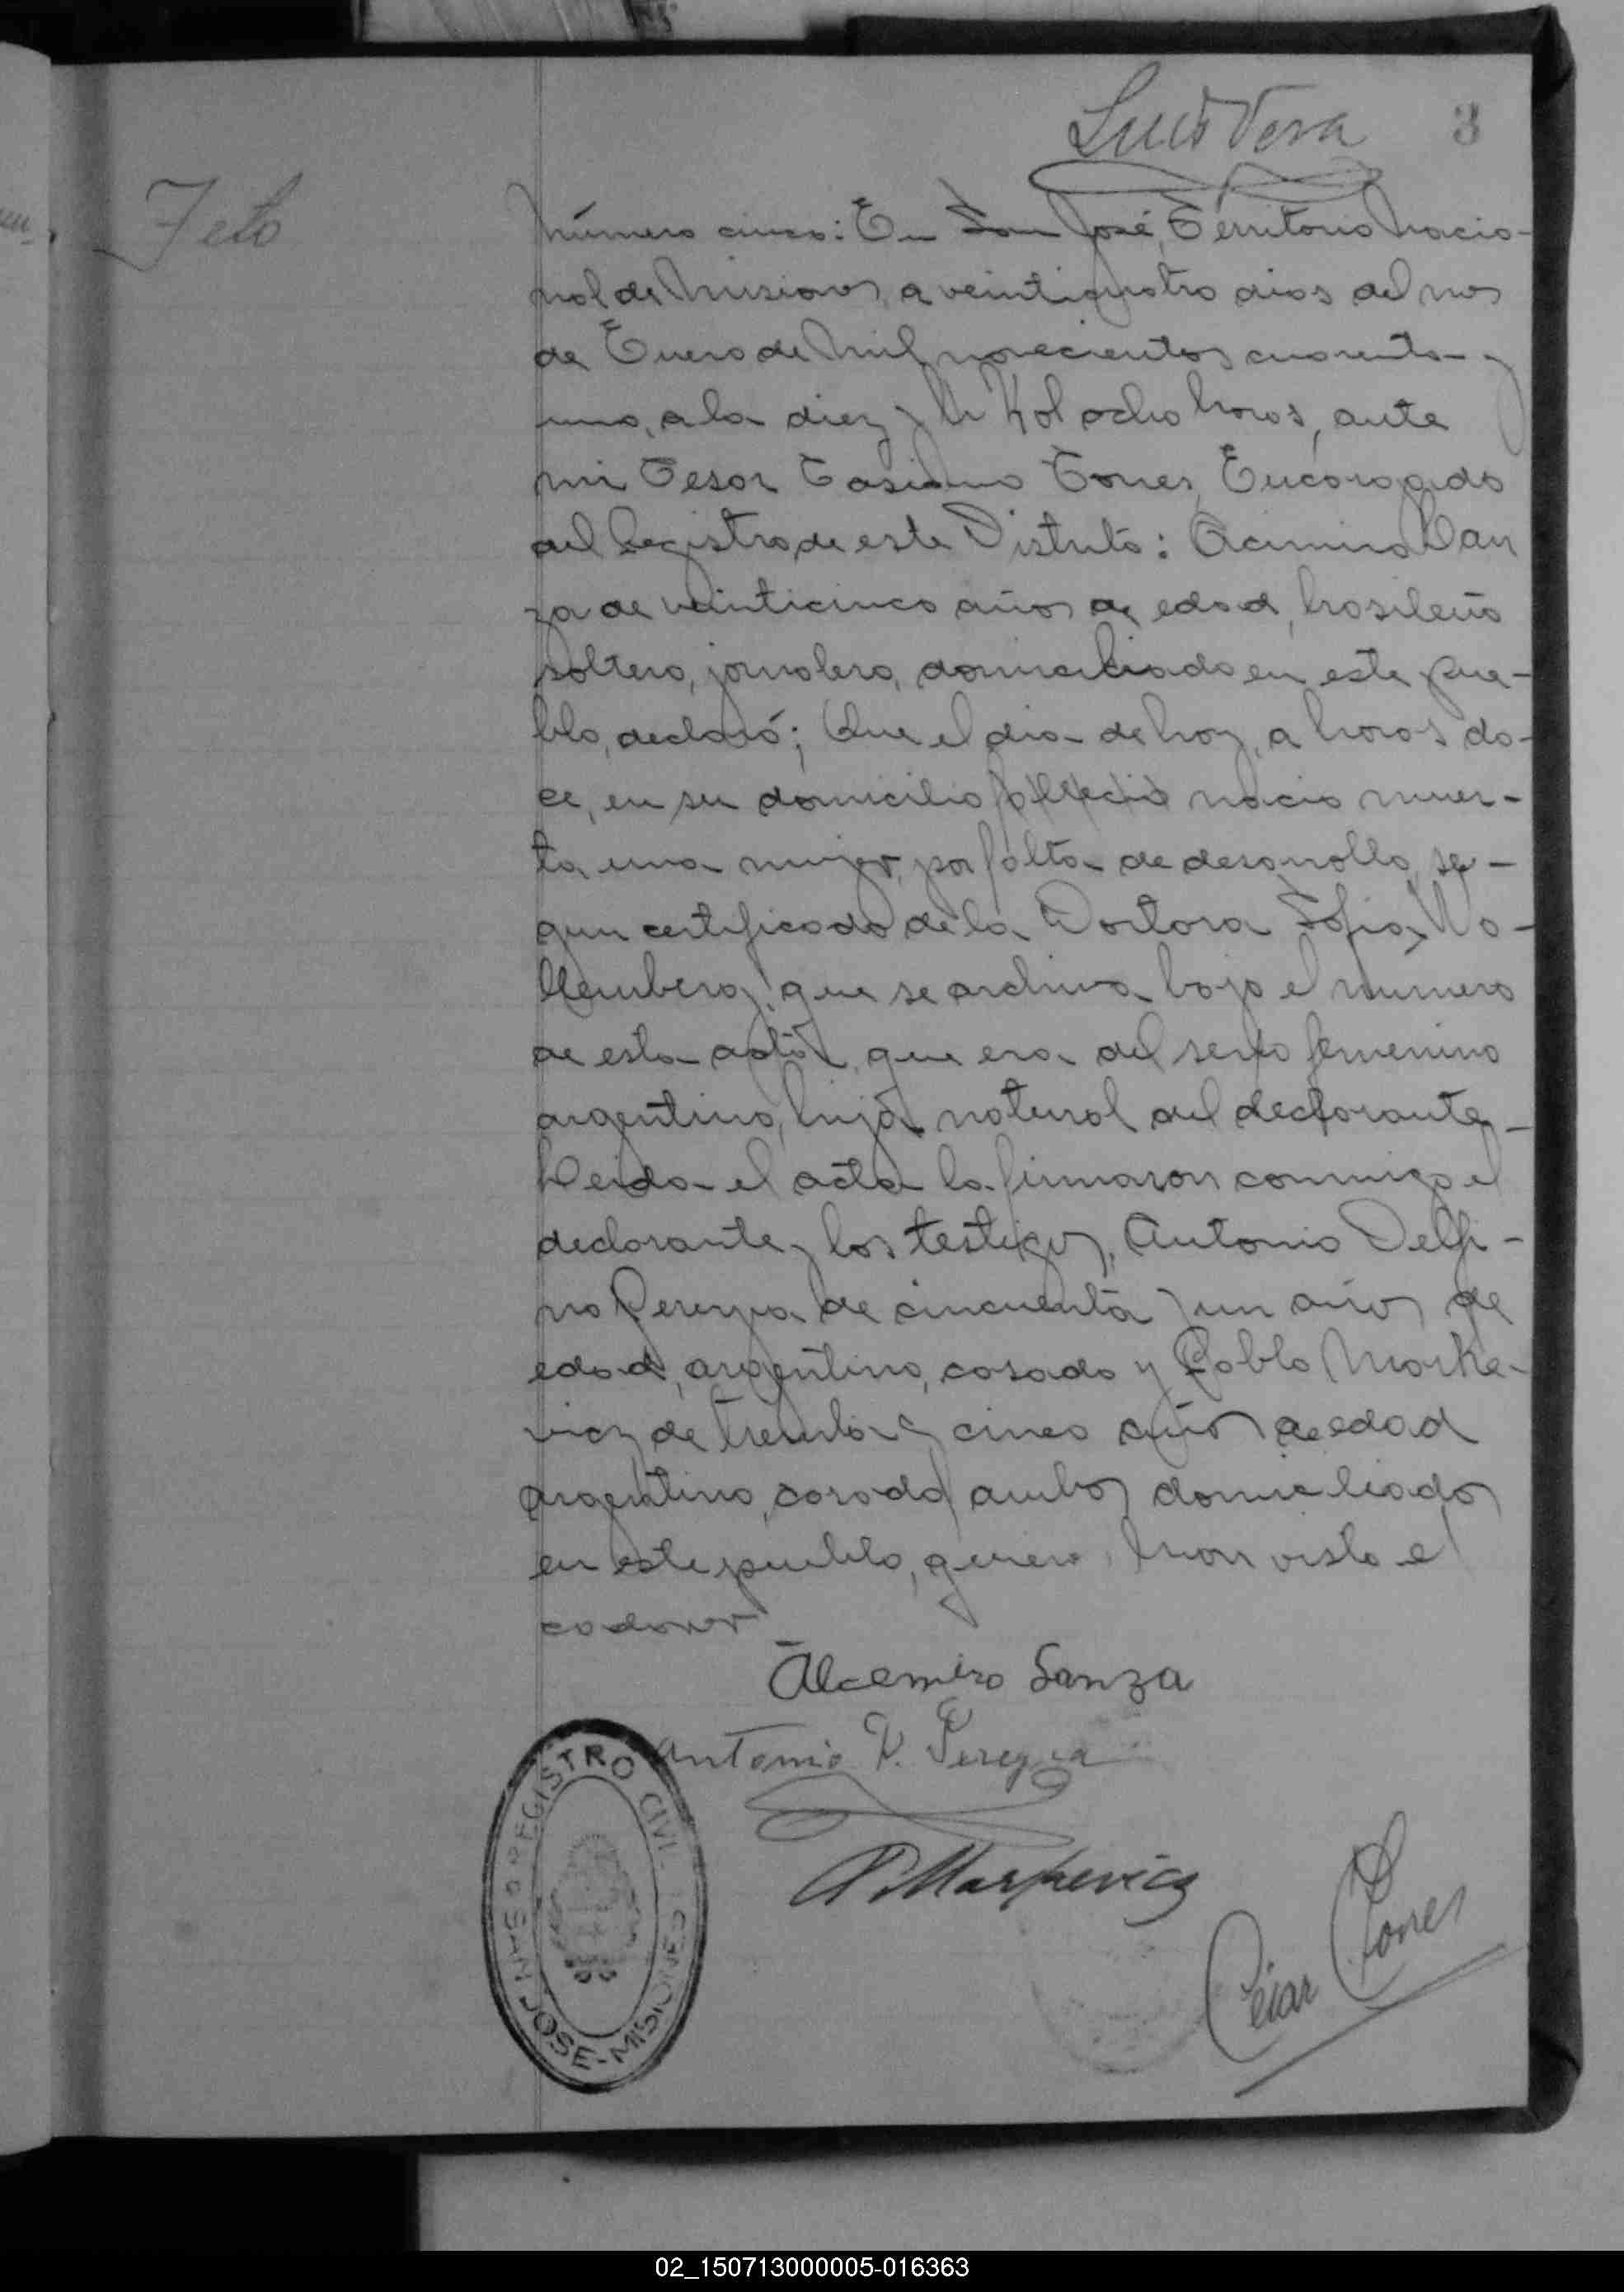 Luis Vera
3
Feto
Número cinco: En San José, Territorio Nacio-
nal de Misiones, a veinticuatro dias del mes
de Enero de mil novecientos cuarenta y
uno, a la diez y ocho horas, ante
mi Cesar Casiano Torres, Encargado
del Registro de este Distrito: Acimiro Lan
za de veinticinco años de edad, brasileño
soltero, jornalero, domiciliado en este pue-
blo, declaró; Que el dia de hoy, a horas do-
ce, en su domicilio falleció nacio muer-
ta una mujer, por falta de desarrollo, se-
gun certificado de la Doctora Sofia Wo-
llemberg, que se archiva bajo el número
de esta acta, que era del sexo femenino
argentino, hija natural del declarante
Leida el acta la firmaron conmigo el
declarante y los testigos, Antonio Delfi-
no Pereyra de cincuenta y un años de
edad, argentino, casado y Pablo Marke-
vicz de treinta y cinco años de edad
argentino, casado ambos domiciliados
en este pueblo, quienes han visto el
cadaver
Alcemiro Lanza
Antonio D. Pereyra
P. Markevicz
Cesar Torres
REGISTRO CIVIL
SAN JOSE-MISIONES
02_150713000005-016363